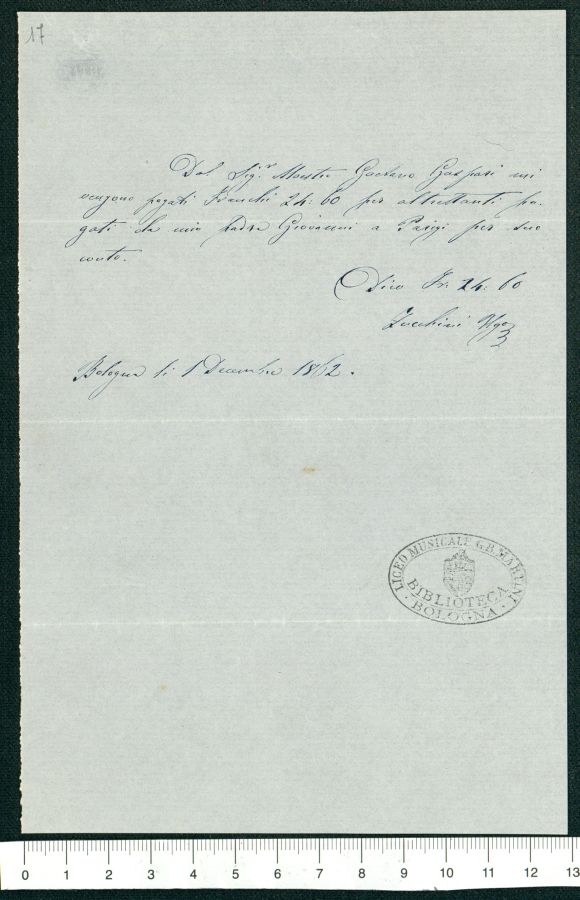 17
Dal Sig.r Maestro Gaetano Gaspari mi
vengono pagati Franchi 24: 60 per altrettanti pa-
gati da mio Padre Giovanni a Parigi per suo
conto.
Dico Fr: 24: 60
Zucchini Ugo
Bologna li 1 Decembre 1862.
LICEO MUSICALE G.B. MARTINI
BIBLIOTECA
· BOLOGNA ·
0 1 2 3 4 5 6 7 8 9 10 11 12 13